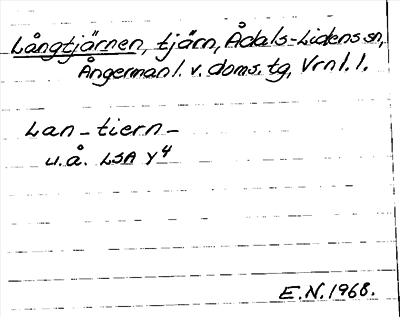 Långtjärnen, tjärn, Ådals-Lidens sn,
Ångermanl. v. doms. tg, Vrnl. l.
Lan-tiern-
u.å. LSA Y4
E.N. 1968.